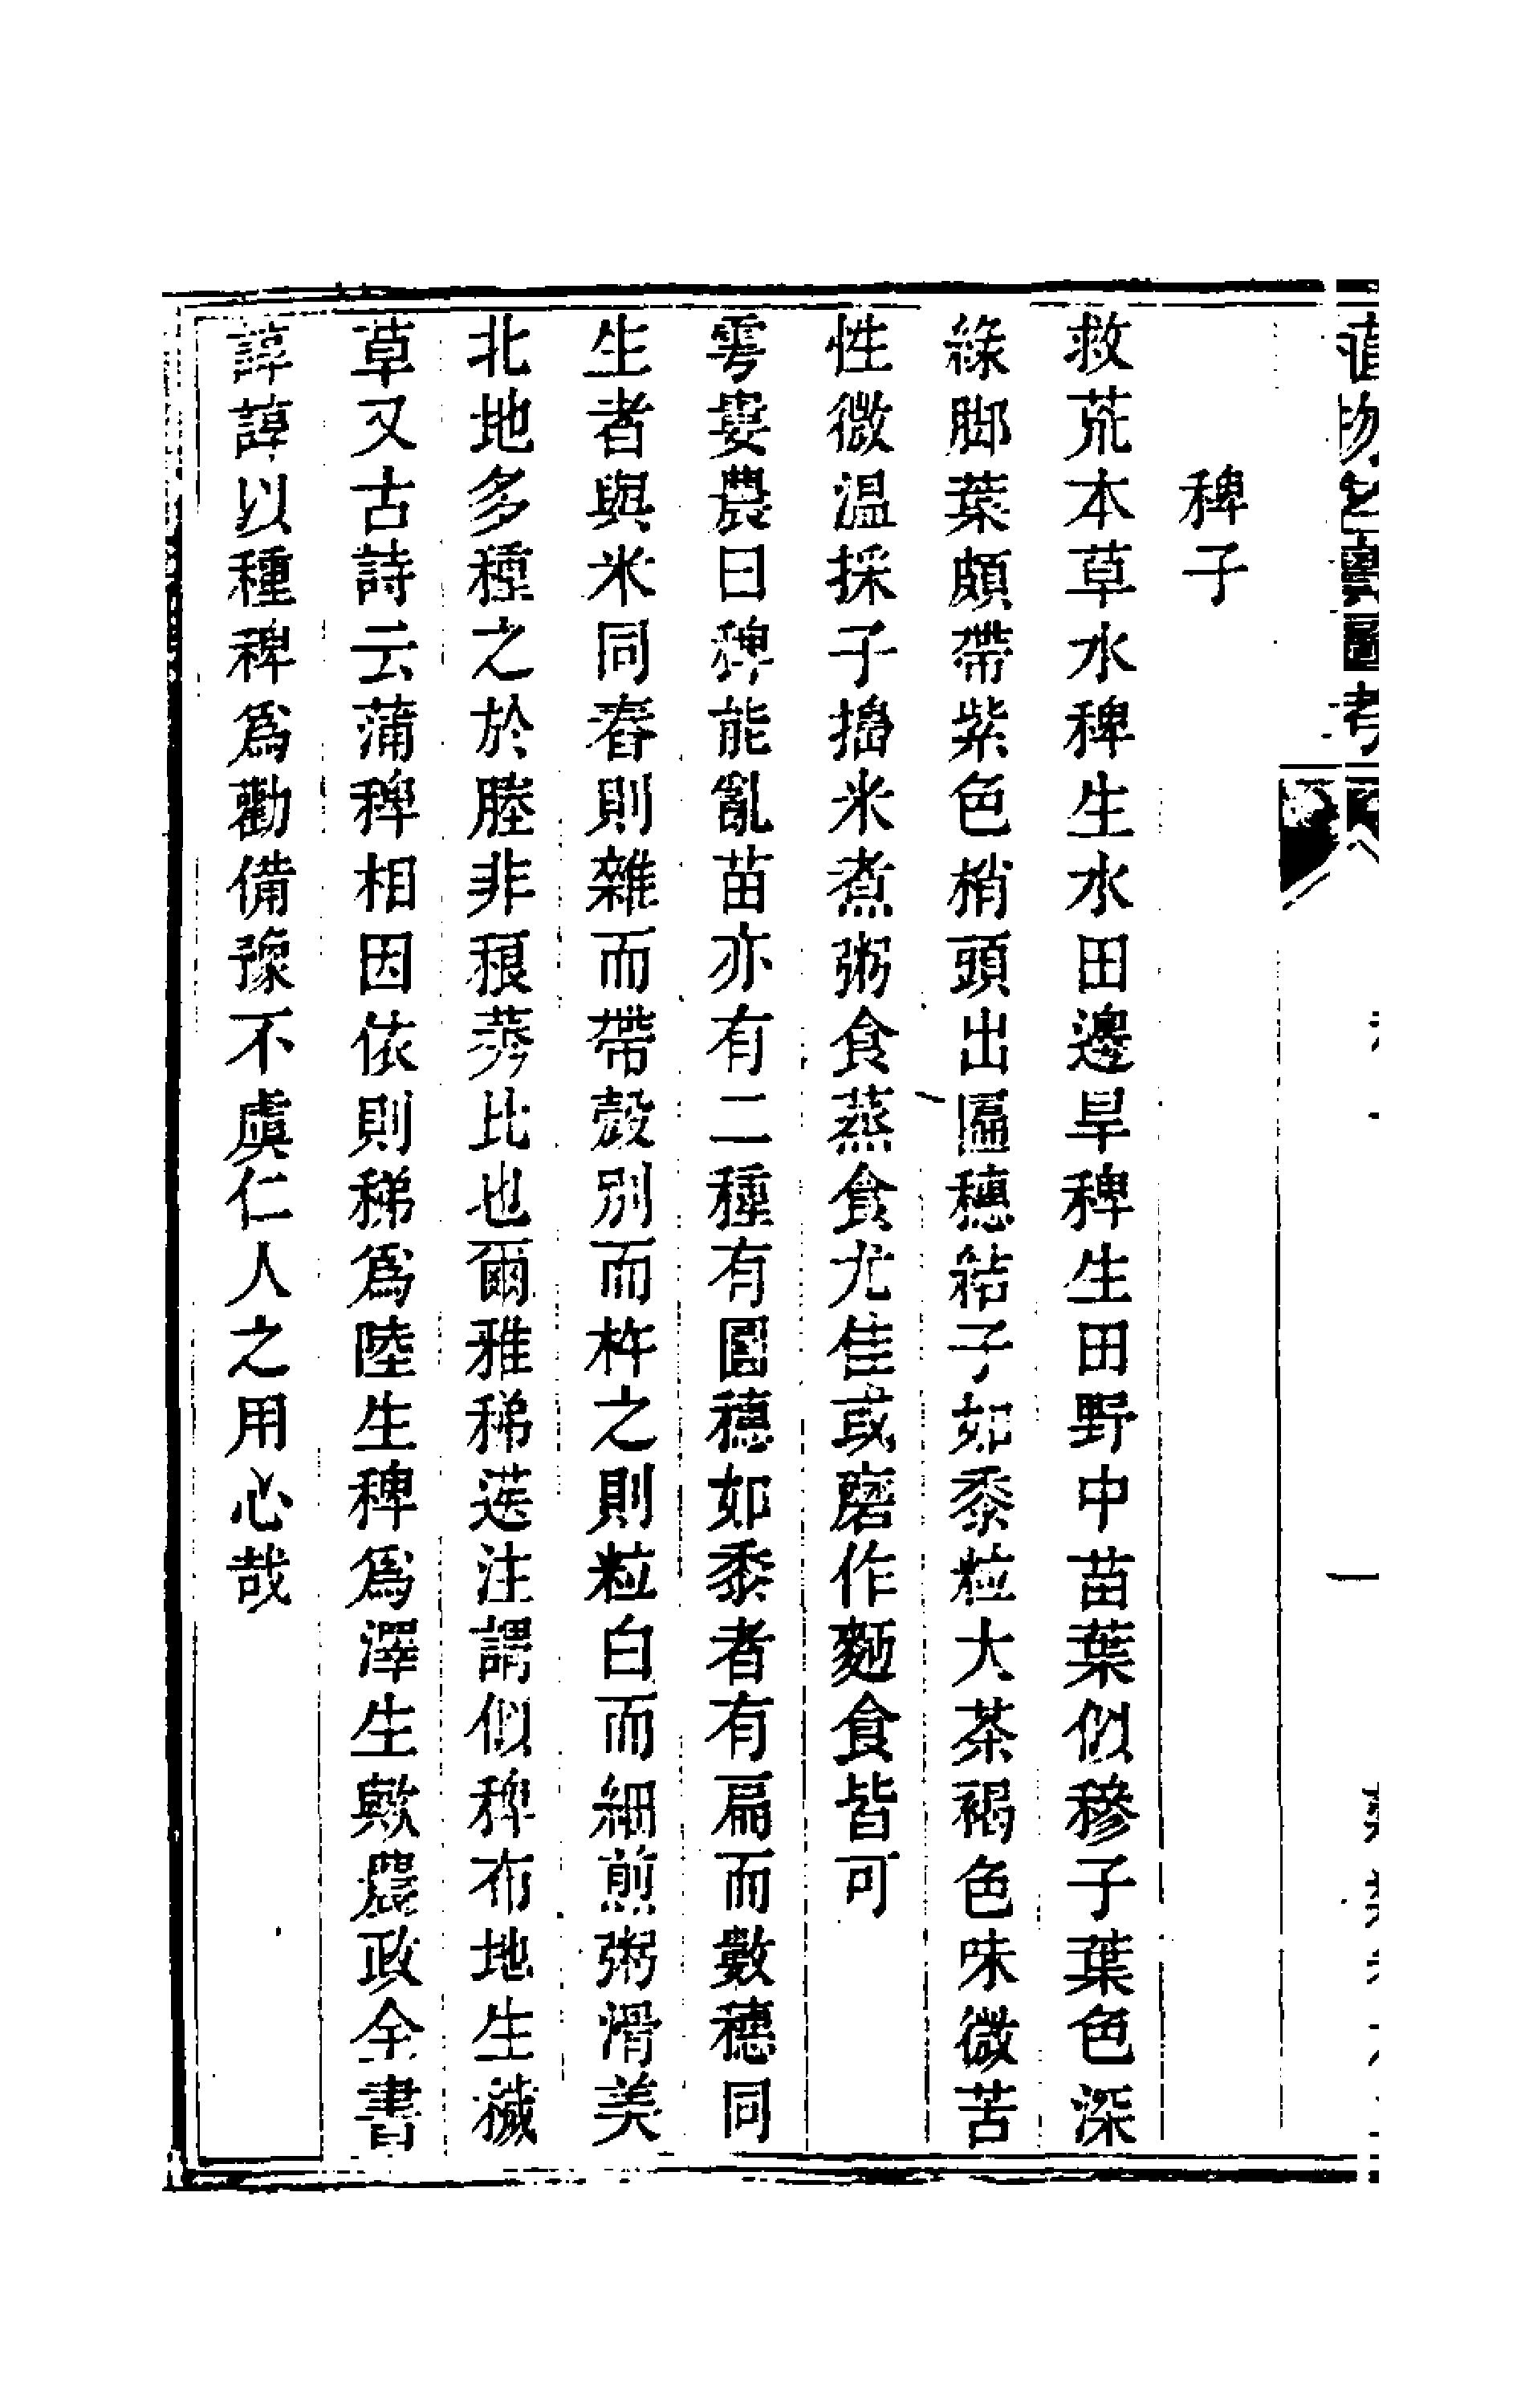 植物名實圖考
稗子
救荒本草水稗生水田邊旱稗生田野中苗葉似穇子葉色深
綠脚葉頗帶紫色梢頭出匾穗結子如黍粒大茶褐色味微苦
性微温採子搗米煮粥食蒸食尤佳或磨作麵食皆可
雩婁農曰稗能亂苗亦有二種有圓穗如黍者有扁而數穗同
生者與米同舂則雜而帶殼別而杵之則粒白而細煎粥滑美
北地多種之於塍非稂莠比也爾雅稊蓫注謂似稗布地生穢
草又古詩云蒲稗相因依則稊為陸生稗為澤生歟農政全書
諄諄以種稗為勸備豫不虞仁人之用心哉